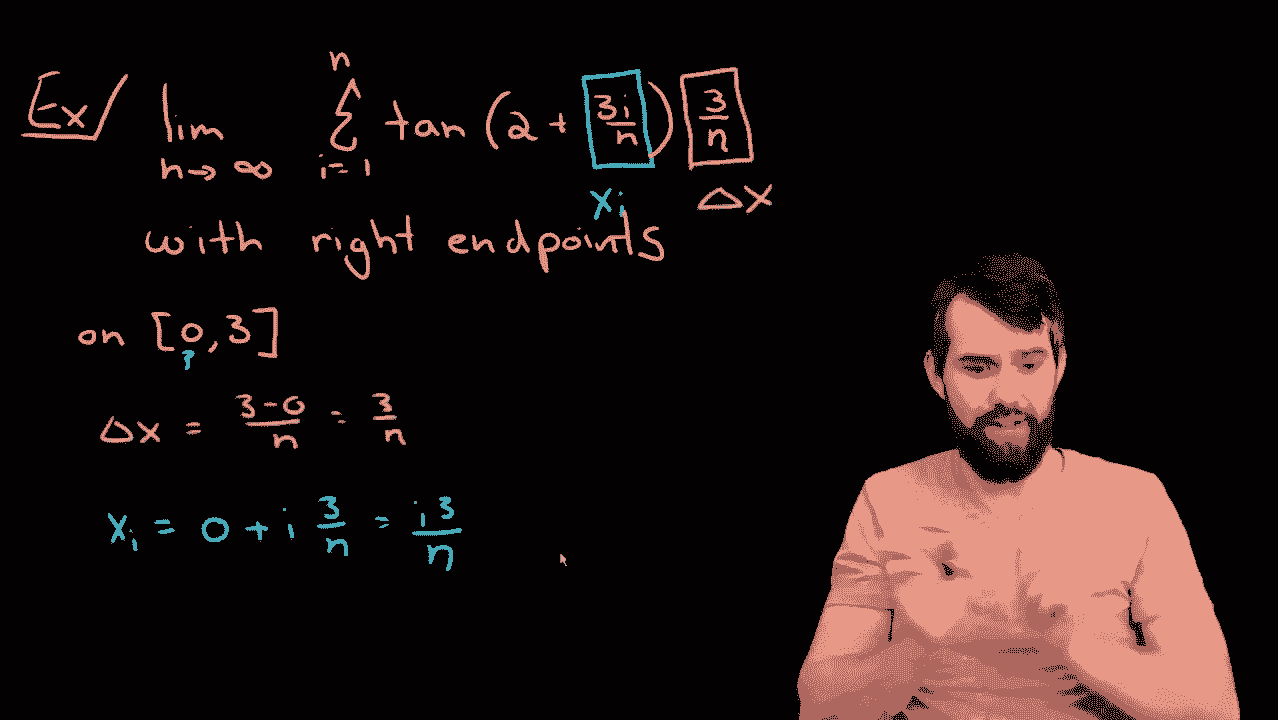 Ex/ lim n→∞ n Σ i=1 tan (2 + 3i/n) 3/n
xi Δx
with right endpoints
on [0,3]
?
Δx = 3-0/n = 3/n
xi = 0 + i 3/n = i3/n